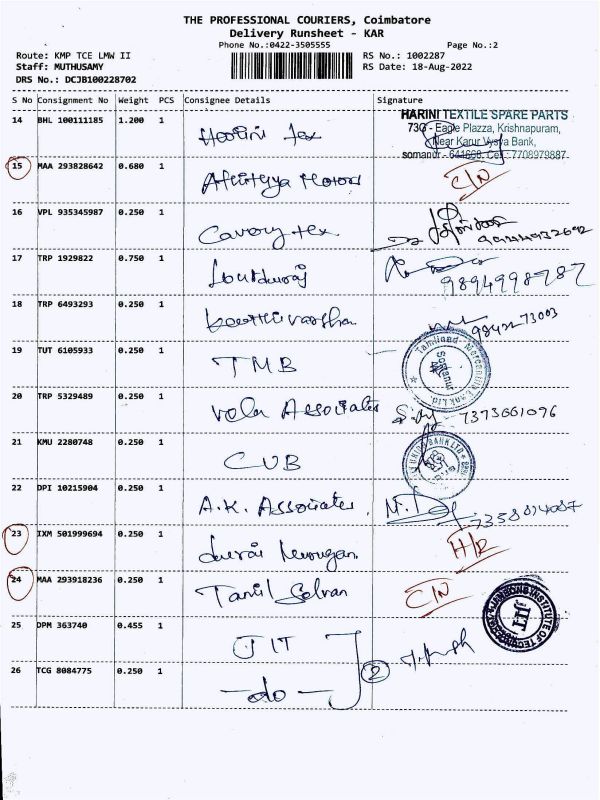 THE PROFESSIONAL COURIERS, Coimbatore
Delivery Runsheet - KAR
Phone No.:0422-3505555 Page No.:2
Route: KMP TCE LMW II RS No.: 1002287
Staff: MUTHUSAMY RS Date: 18-Aug-2022
DRS No.: DCJB100228702
S No Consignment No Weight PCS Consignee Details Signature
HARINI TEXTILE SPARE PARTS
14 BHL 100111185 1.200 1
73G - Eagle Plazza, Krishnapuram,
Near Karur Vysya Bank,
somanur - 641668. Cell : 7708979887
15 MAA 293828642 0.680 1 C/N
16 VPL 935345987 0.250 1
17 TRP 1929822 0.750 1
9894998787
18 TRP 6493293 0.250 1
98422-73003
19 TUT 6105933 0.250 1 TMB Tamilnad Mercantile Bank Ltd. Somanur
20 TRP 5329489 0.250 1 Vela Associates 7373661096
21 KMU 2280748 0.250 1 CUB
22 DPI 10215904 0.250 1 A.K. Associates,
23 IXM 501999694 0.250 1 Durai Murugan
24 MAA 293918236 0.250 1 Tamil Selvan C/N
25 DPM 363740 0.455 1 JIT JIT
26 TCG 8084775 0.250 1 -do- 2